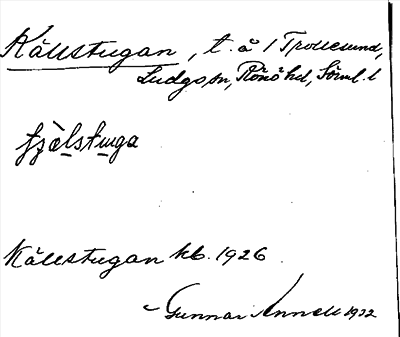 Källstugan, t. å 1 Trollesund,
Ludgo sn, Rönö hd, Söml. l
tjälstuga
Källstugan kb. 1926
Gunnar Annell 1932